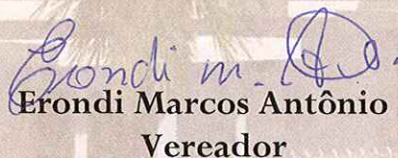 Erondi m.
Erondi Marcos Antônio
Vereador